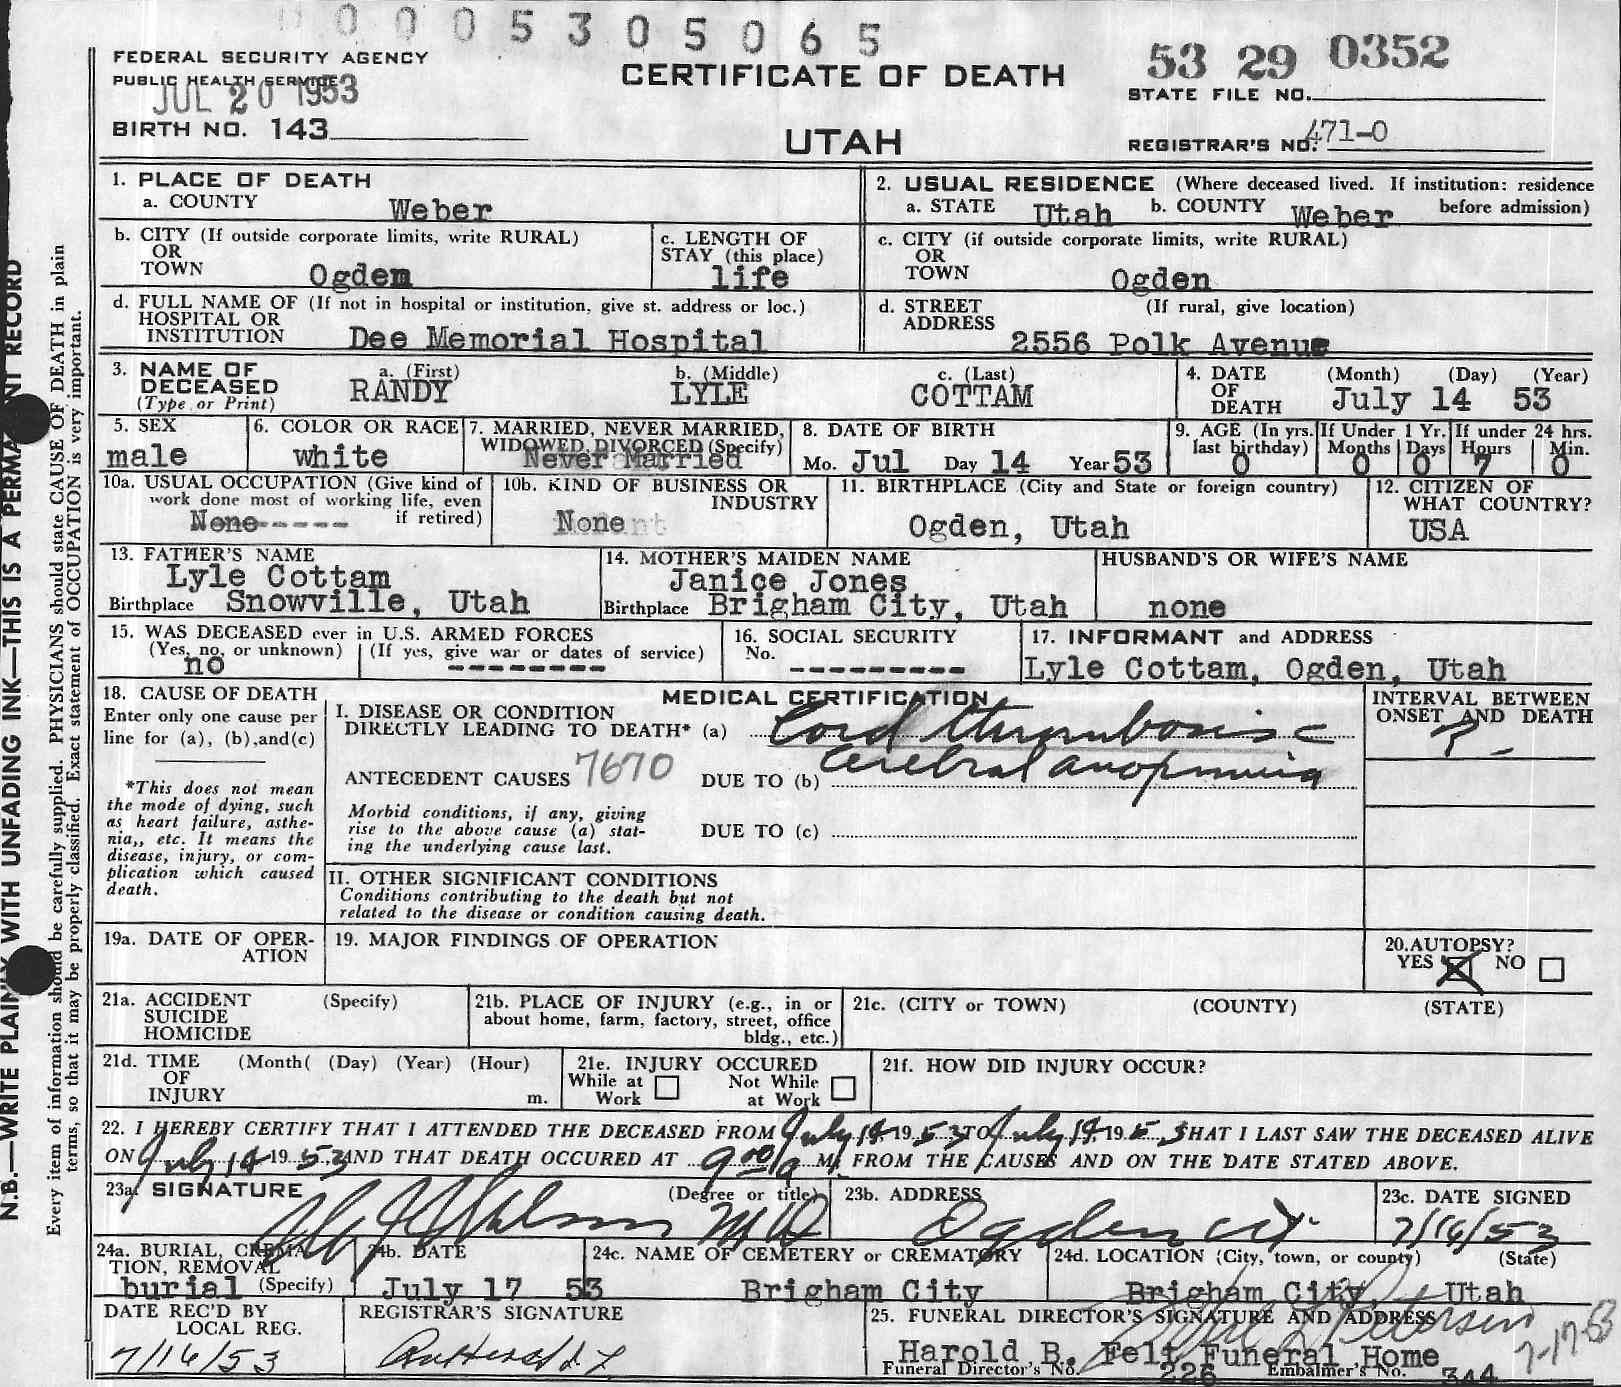 0005305065
FEDERAL SECURITY AGENCY
PUBLIC HEALTH SERVICE
JUL 20 1953
BIRTH NO. 143
CERTIFICATE OF DEATH
UTAH
53 29 0352
STATE FILE NO.
REGISTRAR'S NO. 471-0
1. PLACE OF DEATH
a. COUNTY Weber
2. USUAL RESIDENCE (Where deceased lived. If institution: residence before admission)
a. STATE Utah b. COUNTY Weber
b. CITY (If outside corporate limits, write RURAL)
OR
TOWN Ogden
c. LENGTH OF
STAY (this place)
life
c. CITY (if outside corporate limits, write RURAL)
OR
TOWN Ogden
d. FULL NAME OF (If not in hospital or institution, give st. address or loc.)
HOSPITAL OR
INSTITUTION Dee Memorial Hospital
d. STREET (If rural, give location)
ADDRESS 2556 Polk Avenue
3. NAME OF
DECEASED
(Type or Print)
a. (First) RANDY
b. (Middle) LYLE
c. (Last) COTTAM
4. DATE
OF
DEATH
(Month) (Day) (Year)
July 14 53
5. SEX
male
6. COLOR OR RACE
white
7. MARRIED, NEVER MARRIED,
WIDOWED, DIVORCED (Specify)
Never Married
8. DATE OF BIRTH
Mo. Jul Day 14 Year 53
9. AGE (In yrs. last birthday) 0
If Under 1 Yr. Months 0 Days 0
If under 24 hrs. Hours 7 Min. 0
10a. USUAL OCCUPATION (Give kind of
work done most of working life, even
if retired)
None-----
10b. KIND OF BUSINESS OR
INDUSTRY
None
11. BIRTHPLACE (City and State or foreign country)
Ogden, Utah
12. CITIZEN OF
WHAT COUNTRY?
USA
13. FATHER'S NAME
Lyle Cottam
Birthplace Snowville, Utah
14. MOTHER'S MAIDEN NAME
Janice Jones
Birthplace Brigham City, Utah
HUSBAND'S OR WIFE'S NAME
none
15. WAS DECEASED ever in U.S. ARMED FORCES
(Yes, no, or unknown) (If yes, give war or dates of service)
no --------
16. SOCIAL SECURITY
No. ---------
17. INFORMANT and ADDRESS
Lyle Cottam, Ogden, Utah
18. CAUSE OF DEATH
Enter only one cause per
line for (a), (b), and (c)
*This does not mean
the mode of dying, such
as heart failure, asthe-
nia,, etc. It means the
disease, injury, or com-
plication which caused
death.
MEDICAL CERTIFICATION
I. DISEASE OR CONDITION
DIRECTLY LEADING TO DEATH* (a) Cord thrombosis c
ANTECEDENT CAUSES 7670 DUE TO (b) Cerebral
Morbid conditions, if any, giving
rise to the above cause (a) stat-
ing the underlying cause last.
DUE TO (c)
INTERVAL BETWEEN
ONSET AND DEATH
?
II. OTHER SIGNIFICANT CONDITIONS
Conditions contributing to the death but not
related to the disease or condition causing death.
19a. DATE OF OPER-
ATION
19. MAJOR FINDINGS OF OPERATION
20. AUTOPSY?
YES X NO
21a. ACCIDENT (Specify)
SUICIDE
HOMICIDE
21b. PLACE OF INJURY (e.g., in or
about home, farm, factory, street, office
bldg., etc.)
21c. (CITY or TOWN) (COUNTY) (STATE)
21d. TIME (Month( (Day) (Year) (Hour)
OF
INJURY m.
21e. INJURY OCCURED
While at Work
Not While at Work
21f. HOW DID INJURY OCCUR?
22. I HEREBY CERTIFY THAT I ATTENDED THE DECEASED FROM July 14 19 53 TO July 14 19 53 THAT I LAST SAW THE DECEASED ALIVE
ON July 14 19 53 AND THAT DEATH OCCURED AT 9 00 a M. FROM THE CAUSES AND ON THE DATE STATED ABOVE.
23a. SIGNATURE (Degree or title)
MD
23b. ADDRESS
Ogden
23c. DATE SIGNED
7/16/53
24a. BURIAL, CREMA-
TION, REMOVAL
(Specify)
burial
24b. DATE
July 17 53
24c. NAME OF CEMETERY or CREMATORY
Brigham City
24d. LOCATION (City, town, or county) (State)
Brigham City, Utah
DATE REC'D BY
LOCAL REG.
7/16/53
REGISTRAR'S SIGNATURE
25. FUNERAL DIRECTOR'S SIGNATURE AND ADDRESS
Harold B. Felt Funeral Home
Funeral Director's No. 226 Embalmer's No. 344
7-17-53
N.B.—WRITE PLAINLY WITH UNFADING INK—THIS IS A PERMANENT RECORD
Every item of information should be carefully supplied. PHYSICIANS should state CAUSE OF DEATH in plain
terms, so that it may be properly classified. Exact statement of OCCUPATION is very important.